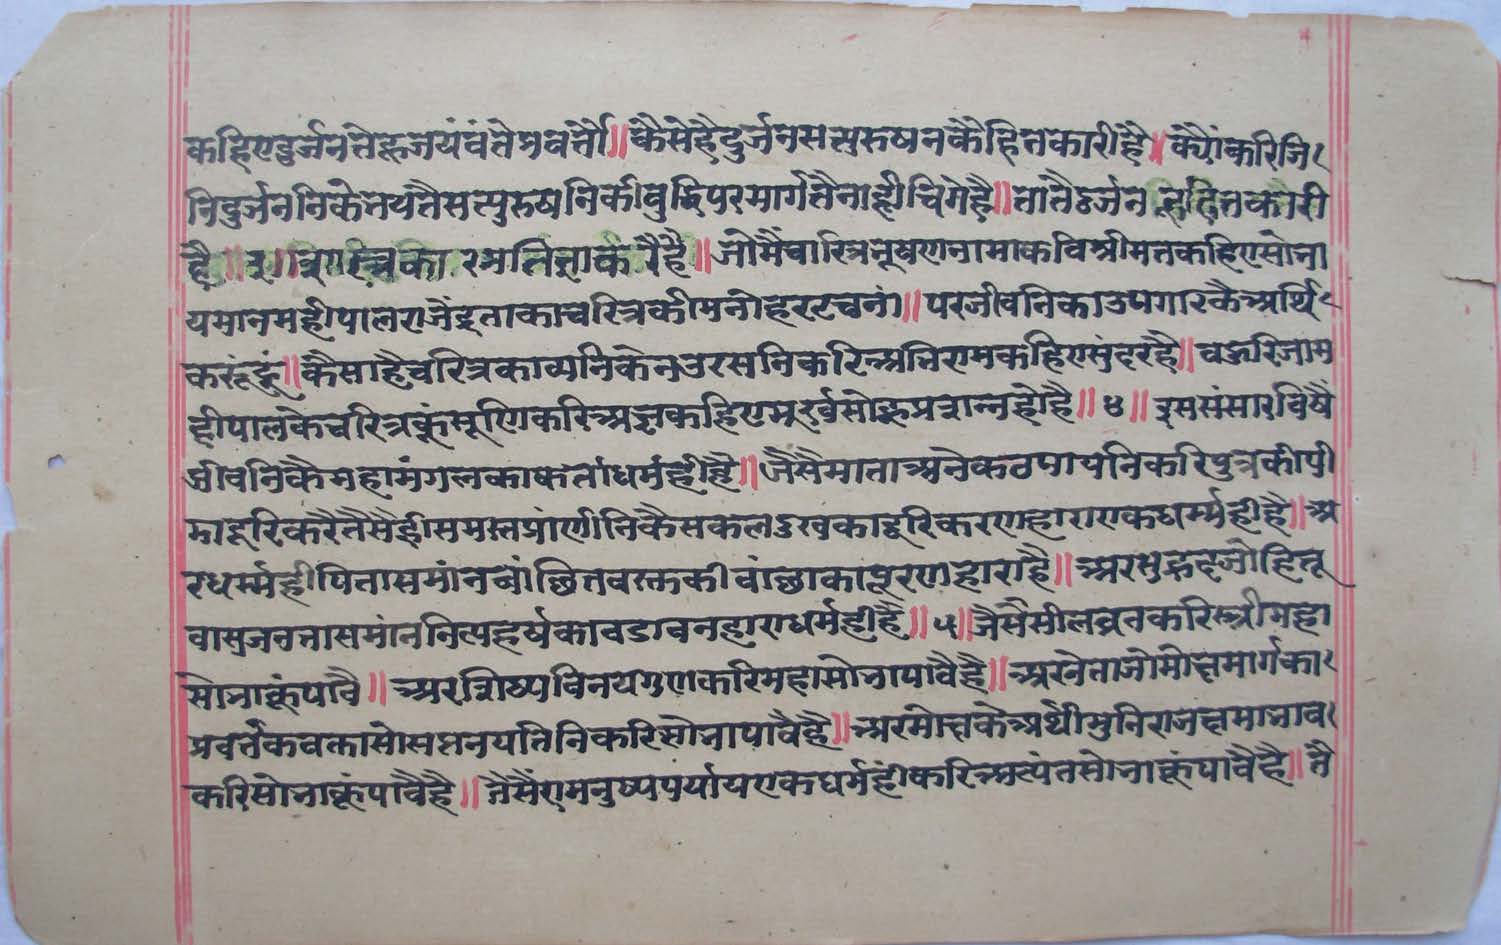 कहिए दुर्जन तेहू जयंवंते प्रवर्त्तौ॥ कैसे है दुर्जन सत्पुरुषनकै हितकारी है॥ क्यौं करि जि
नि दुर्जननिके भयतै सत्पुरुषनिकी बुद्धि परमार्गतै नाही चिगे है॥ तातै दुर्जन हू हितकारी
है॥ ३॥ है॥ जो मैं चारित्रभूषण नामा कवि श्रीमत कहिए सोभा
यमान महीपाल राजैंद्र ताका चरित्रकी मनोहर रचनां॥ पर जीवनिका उपगारकै अर्थि
करूं हूं॥ कैसा है चरित्र काव्यनिके नउ रसनि करि अभिराम कहिए सुंदर है॥ बहुरि जा म
हीपालके चरित्रकूं सूणि करि अज्ञ कहिए मूर्ख सो हू प्रबान्न हो है॥ ४॥ इस संसार विषैं
जीवनिकै महामंगलका कर्ता धर्म ही है॥ जैसै माता अनेक उपायनि करि पुत्रकी पी
डा दूरि करै तैसै ही समस्त प्रांणीनिकै सकल दुखका दूरि करणहारा एक धर्म्म ही है॥ अ
र धर्म्म ही पिता समांन बांछित वस्तकी वांछाका पूरणहारा है॥ अर सुहृद जो हितू
वा सजन ता समांन नित्य हर्षका बडावनहारा धर्म ही है॥ ५॥ जैसै सीलव्रत करि स्त्री महा
सोभाकूं पावै॥ अर शिष्य विनय गुण करि महा सोभा पावै है॥ अर नेता जो मोक्षमार्गका
प्रवर्त्तक वक्ता सो सप्त नयनि करि सोभा पावै है॥ अर मोक्षके अर्थी मुनिराज क्षमा भाव
करि सोभाकूं पावै है॥ तैसैं ए मनुष्य पर्याय एक धर्म ही करि अत्यंत सोभाकूं पावै है॥ तै